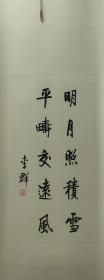 明月照積雪
平疇交遠風
李群